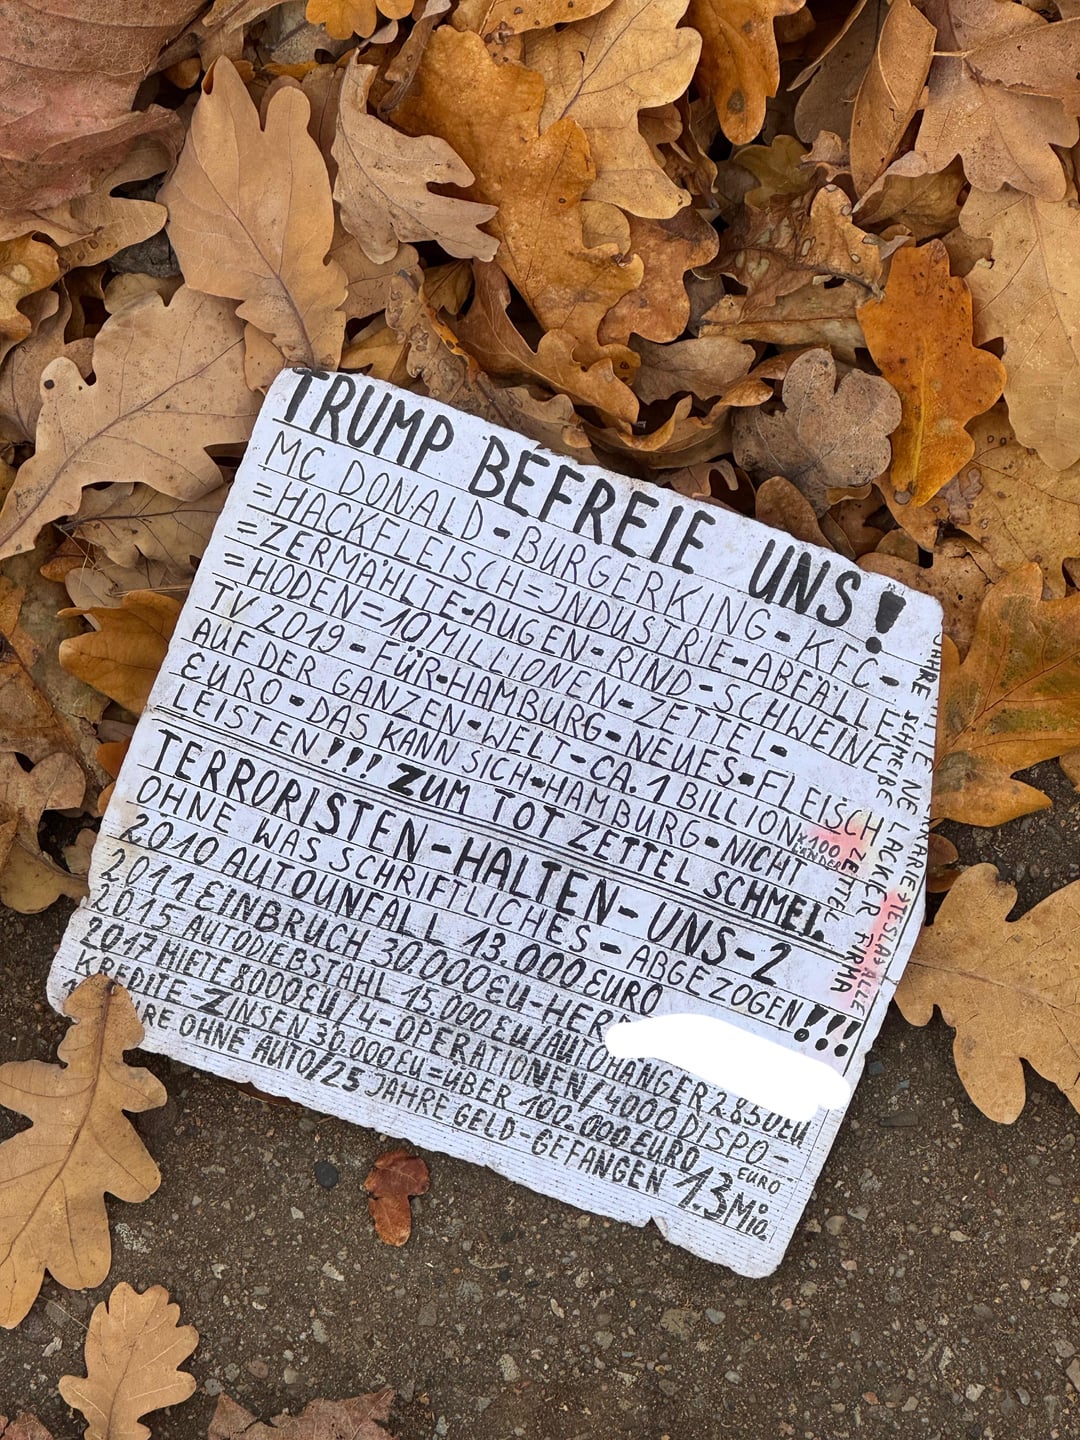 TRUMP BEFREIE UNS!
MC DONALD-BURGERKING-KFC-
=HACKFLEISCH=JNDUSTRIE-ABFÄLLE
=ZERMÄHLTE-AUGEN-RIND-SCHWEINE
=HODEN=10 MILLIONEN-ZETTEL-
TV 2019-FÜR-HAMBURG-NEUES-FLEISCH
AUF DER GANZEN-WELT-CA. 1 BILLION
EURO-DAS KANN SICH-HAMBURG-NICHT
LEISTEN!!! ZUM TOT ZETTEL SCHMEI.
TERRORISTEN-HALTEN-UNS-2
OHNE WAS SCHRIFTLICHES-ABGEZOGEN!!!
2010 AUTOUNFALL 13.000 EURO
2011 EINBRUCH 30.000EU-HER
2015 AUTODIEBSTAHL 15.000EU/AUTOHÄNGER 2850EU
2017 MIETE 8000EU/4-OPERATIONEN/4000 DISPO-
KREDITE-ZINSEN 30.000EU=ÜBER 100.000EURO
RE OHNE AUTO/25 JAHRE GELD-GEFANGEN 1.3 Mio.
EURO
x100
LÄNDER
ZETTEL
LACKIER FIRMA
TESLA ALLE